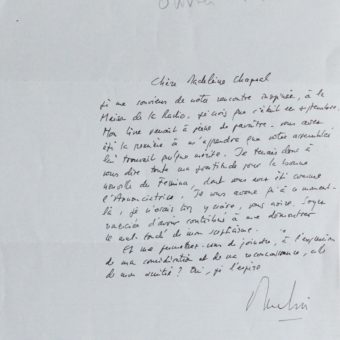 Chère Madeleine Chapsal
je me souviens de notre rencontre inopinée, à la
Maison de la Radio. je crois que c'était en septembre.
Mon livre venait à peine de paraître. vous avez
été la première à m'apprendre que votre assemblée
lui trouvait quelque mérite. Je tenais donc à
vous dire toute ma gratitude pour la bonne
nouvelle du Femina, dont vous avez été comme
l'Annonciatrice. Je vous avoue qu'à ce moment-
là, je n'osais y croire, vous croire. Soyez
remerciée d'avoir contribué à me démontrer
le mal-fondé de mon scepticisme.
Et me permettez-vous de joindre, à l'expression
de ma considération et de ma reconnaissance, celle
de mon amitié? Oui, je l'espère